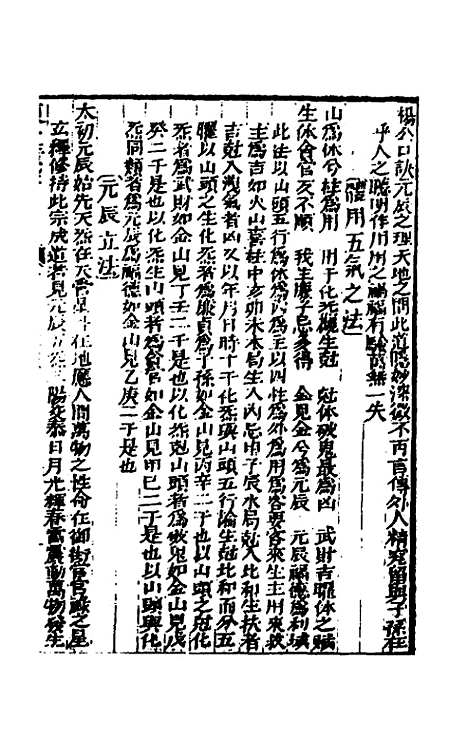 楊公口訣元辰之理天地之間此道隱妙深微不可言傳外人精究留與子孫在
乎人之聰明作用用之禍福有驗萬無一失
體用五氣之法
山為休兮柱為用 用干化炁觀生尅 尅休破鬼最為凶 武財吉耀休之賊
生休食官友不順 我生廉子忌多得 金見金兮為元辰 元辰福德為利城
此法以山頭五行為休為內為主以四柱為外為用為客要客來生主用來扶
主為吉如火山喜柱中亥卯未木局生入內忌申子辰水局尅入比和生扶者
吉尅入洩氣者凶又以年月日時十干化炁與山頭五行論生尅比和而分五
曜以山頭之生化炁者為廉貞為子孫如金山見丙辛二干也以山頭之尅化
炁者為武財如金山見丁壬二干是也以化炁尅山頭者為破鬼如金山見戊
癸二干是也以化炁生山頭者為食官如金山見甲巳二干是也以山頭與化
炁同類者為元辰為福德如金山見乙庚二干是也
元辰立法
太初元辰始先天炁在天嘗星斗在地應人間萬物之性命在御街官貴祿之星
立極修持此宗成道者見元辰五炁三陽交泰日月光輝春雷震動萬物發生